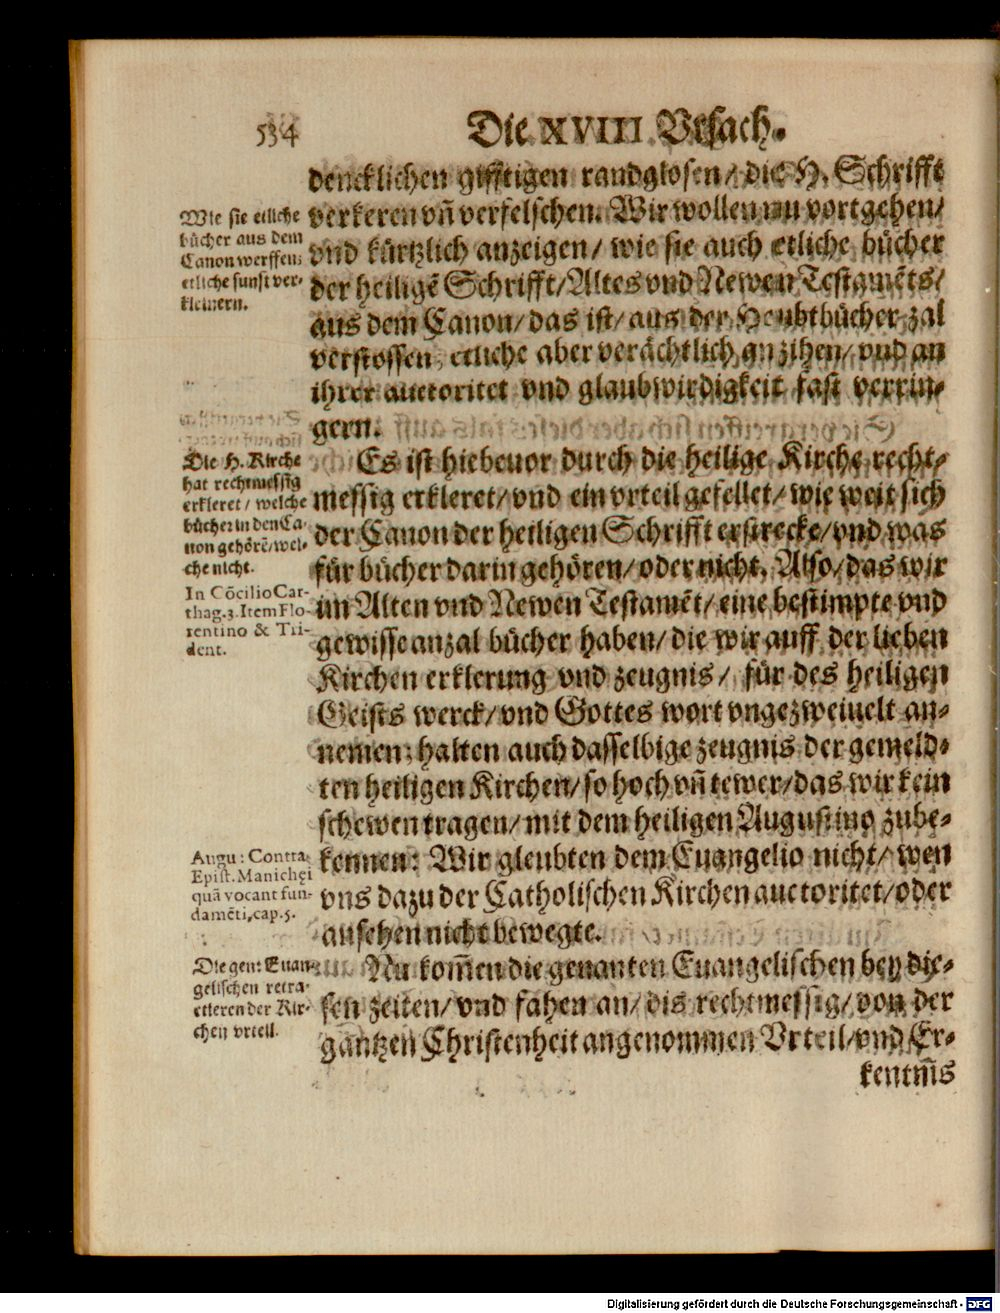 534
Die XVIII Vrsach.
dencklichen gifftigen randglosen/ die H. Schrifft
verkeren vñ verfelschen. Wir wollen nu vortgehen/
vnd kürtzlich anzeigen/ wie sie auch etliche bücher
der heiligẽ Schrifft/ Altes vnd Newen Testamẽts/
aus dem Canon/ das ist/ aus der Heubtbücher zal
verstossen, etliche aber verächtlich anzihen/ vnd an
ihrer auctoritet vnd glaubwirdigkeit fast verrin-
gern.
Wie sie etliche
bücher aus dem
Canon werffen,
etliche sunst ver-
kleinern.
Es ist hiebeuor durch die heilige Kirche recht-
messig erkleret/ vnd ein vrteil gefellet/ wie weit sich
der Canon der heiligen Schrifft erstrecke/ vnd was
für bücher darin gehören/ oder nicht. Also/ das wir
im Alten vnd Newen Testamẽt/ eine bestimpte vnd
gewisse anzal bücher haben/ die wir auff der lieben
Kirchen erklerung vnd zeugnis/ für des heiligen
Geists werck/ vnd Gottes wort vngezweiuelt an-
nemen; halten auch dasselbige zeugnis der gemeld-
ten heiligen Kirchen/ so hoch vñ tewer/ das wir kein
schewen tragen/ mit dem heiligen Augustino zube-
kennen: Wir gleubten dem Euangelio nicht/ wen
vns dazu der Catholischen Kirchen auctoritet/ oder
ansehen nicht bewegte.
Die H. Kirche
hat rechtmessig
erkleret/ welche
bücher in den Ca-
non gehörẽ/ wel-
che nicht.
In Cõcilio Car-
thag. 3. Item Flo-
rentino & Tri-
dent.
Augu: Contra
Epist. Manichęi
quã vocant fun-
damẽti, cap. 5.
Nu kom̃en die genanten Euangelischen bey die-
sen zeiten/ vnd fahen an/ dis rechtmessig/ von der
gantzen Christenheit angenommen Vrteil/ vnd Er-
kentnis
Die gen: Euan-
gelischen retra-
ctieren der Kir-
chen vrteil.
Digitalisierung gefördert durch die Deutsche Forschungsgemeinschaft - DFG